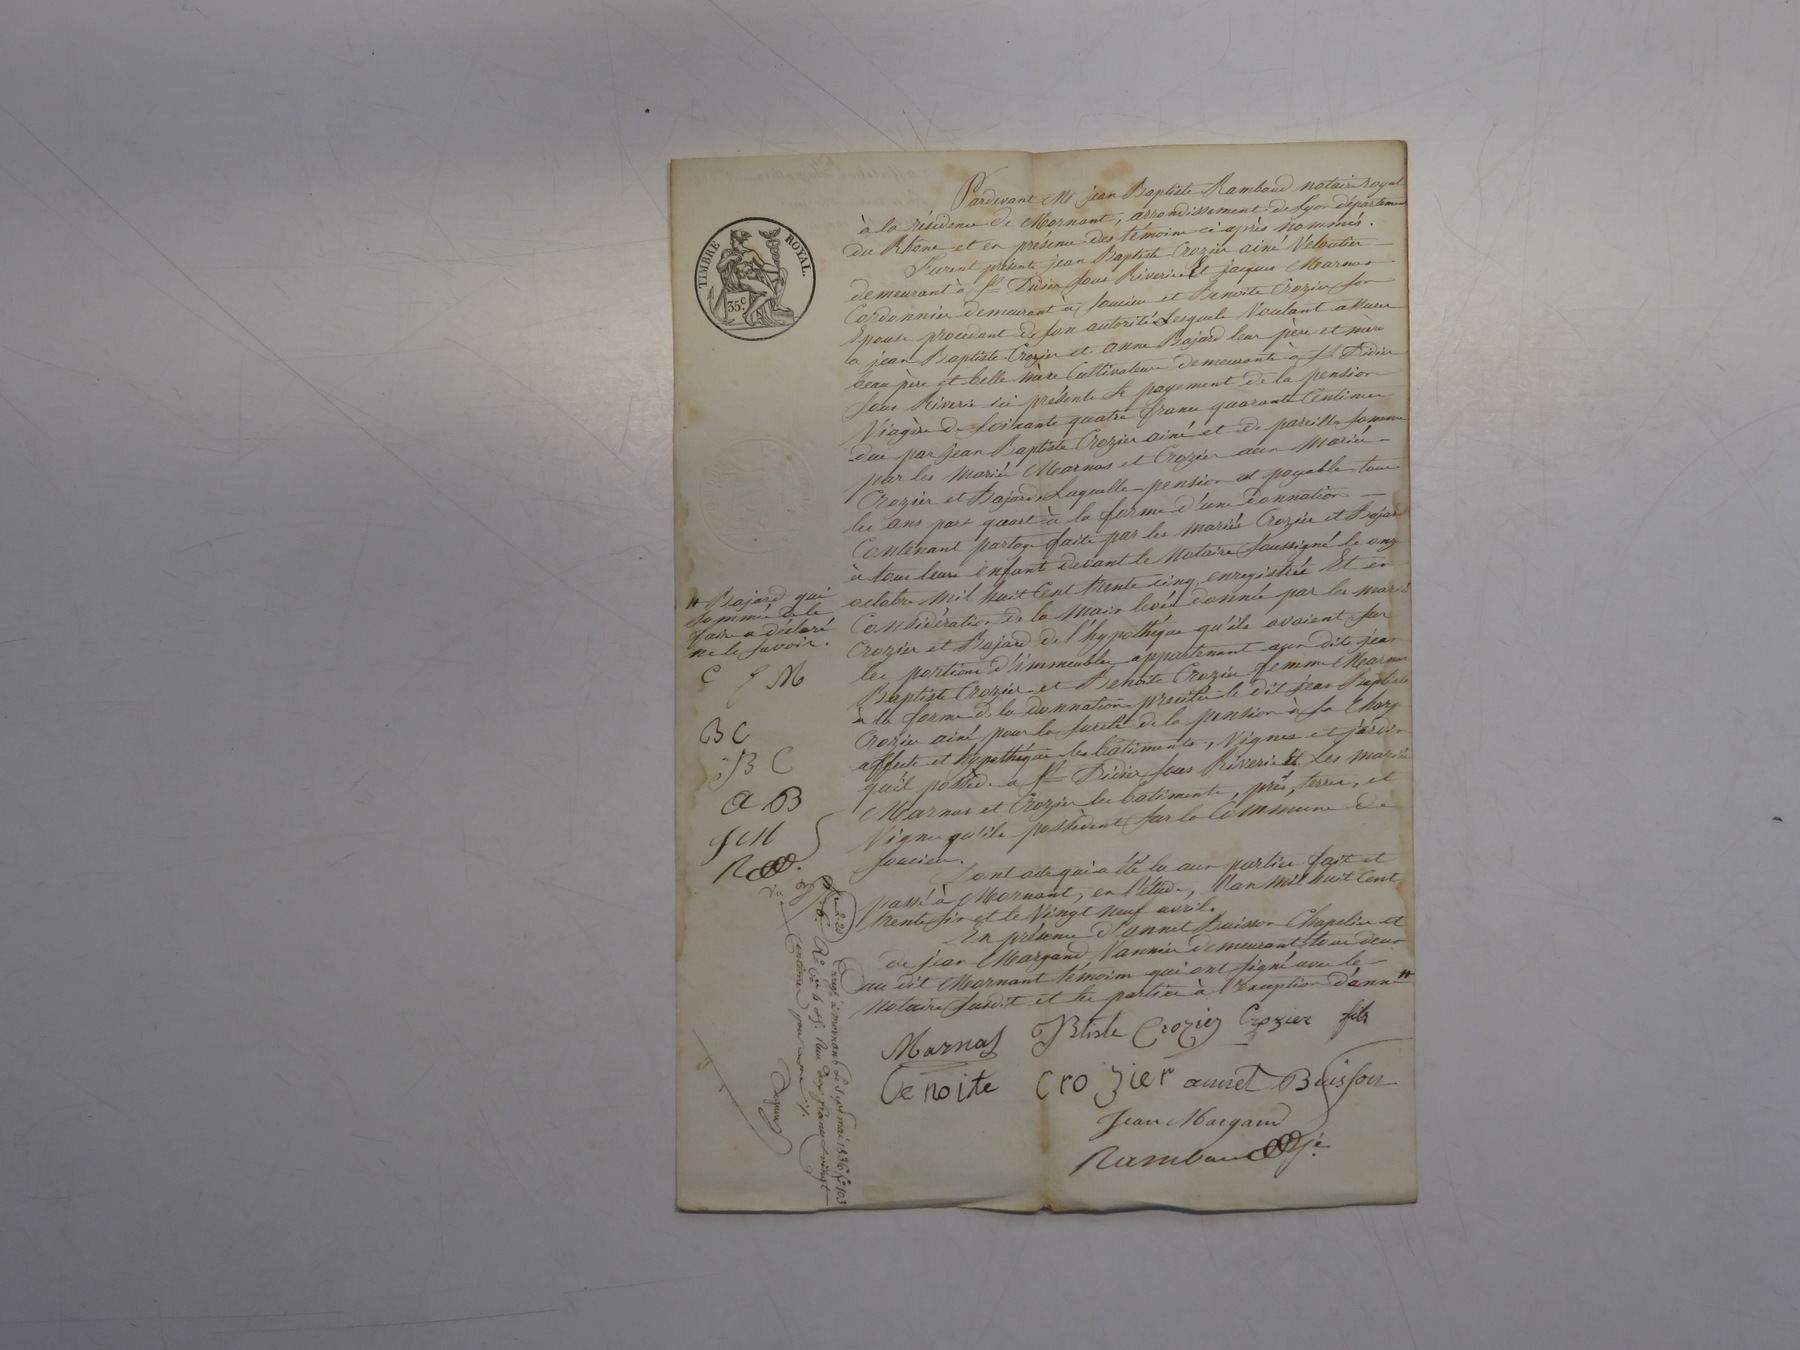 TIMBRE ROYAL.
35c
Pardevant Me jean Baptiste Rambaud notaire royal
à la résidence de Mornant, arrondissement de Lyon département
du Rhône et en présence des témoins ci après nommés.
Furent présents jean Baptiste Crozier ainé Veloutier
demeurant à St Didier sous Riverie Et jacques Marnas
Cordonnier demeurant à Soucieu et Benoite Crozier son
Epouse procédant de son autorité Lesquels Voulant assurer
a jean Baptiste Crozier et anne Bajard leur père et mère
beau père et belle mère Cultivateurs demeurants à St Didier
sous Riverie ici présents Le payement de la pension
Viagère de soixante quatre francs quarante Centimes
due par jean Baptiste Crozier ainé et de pareille somme
par les mariés Marnas et Crozier aux mariés
Crozier et Bajard, Laquelle pension est payable tous
les ans par quart à la forme d'une donnation
Contenant partage faite par les mariés Crozier et Bajard
à tous leurs enfants devant le Notaire soussigné le onze
octobre mil huit Cent trente cinq, enregistrée Et en
Considération de la main levée donnée par les mariés
Crozier et Bajard de l'hypothéque qu'ils avaient sur
les portions d'immeubles appartenant aux dits jean
Baptiste Crozier et Benoite Crozier femme Marnas
à la forme de la donnation précitée le dit jean Baptiste
Crozier ainé pour la sureté de la pension à sa Charge
affecte et hypothéque les batiments, Vignes et jardin
qu'il possède a St Didier sous Riverie Et Les mariés
Marnas et Crozier les batiments, prés, terres, et
Vignes qu'ils possèdent sur la Commune de
Soucieu.
Dont acte qui a été lu aux parties fait et
passé à Mornant, en l'étude, l'an mil huit Cent
trente six et le Vingt neuf avril.
En présence d'annet Buisson Chapelier et
de jean Margand Vannier demeurant tous deux
au dit Mornant témoins qui ont signé avec le
Notaire susdit et les parties à l'exception d'anne #
# Bajard qui
sommée de le
faire a déclaré
ne le savoir.
C f M
BC
jB C
a B
J M
R
Marnas JBtiste Crozier Crozier fils
Benoite Crozier annet Buisson
Jean Margand
Rambaud
Enregé à mornant Le sept mai 1836 fo 103
Ro Ce 4 et 5. Reçu deux francs vingt
centimes pour dixme